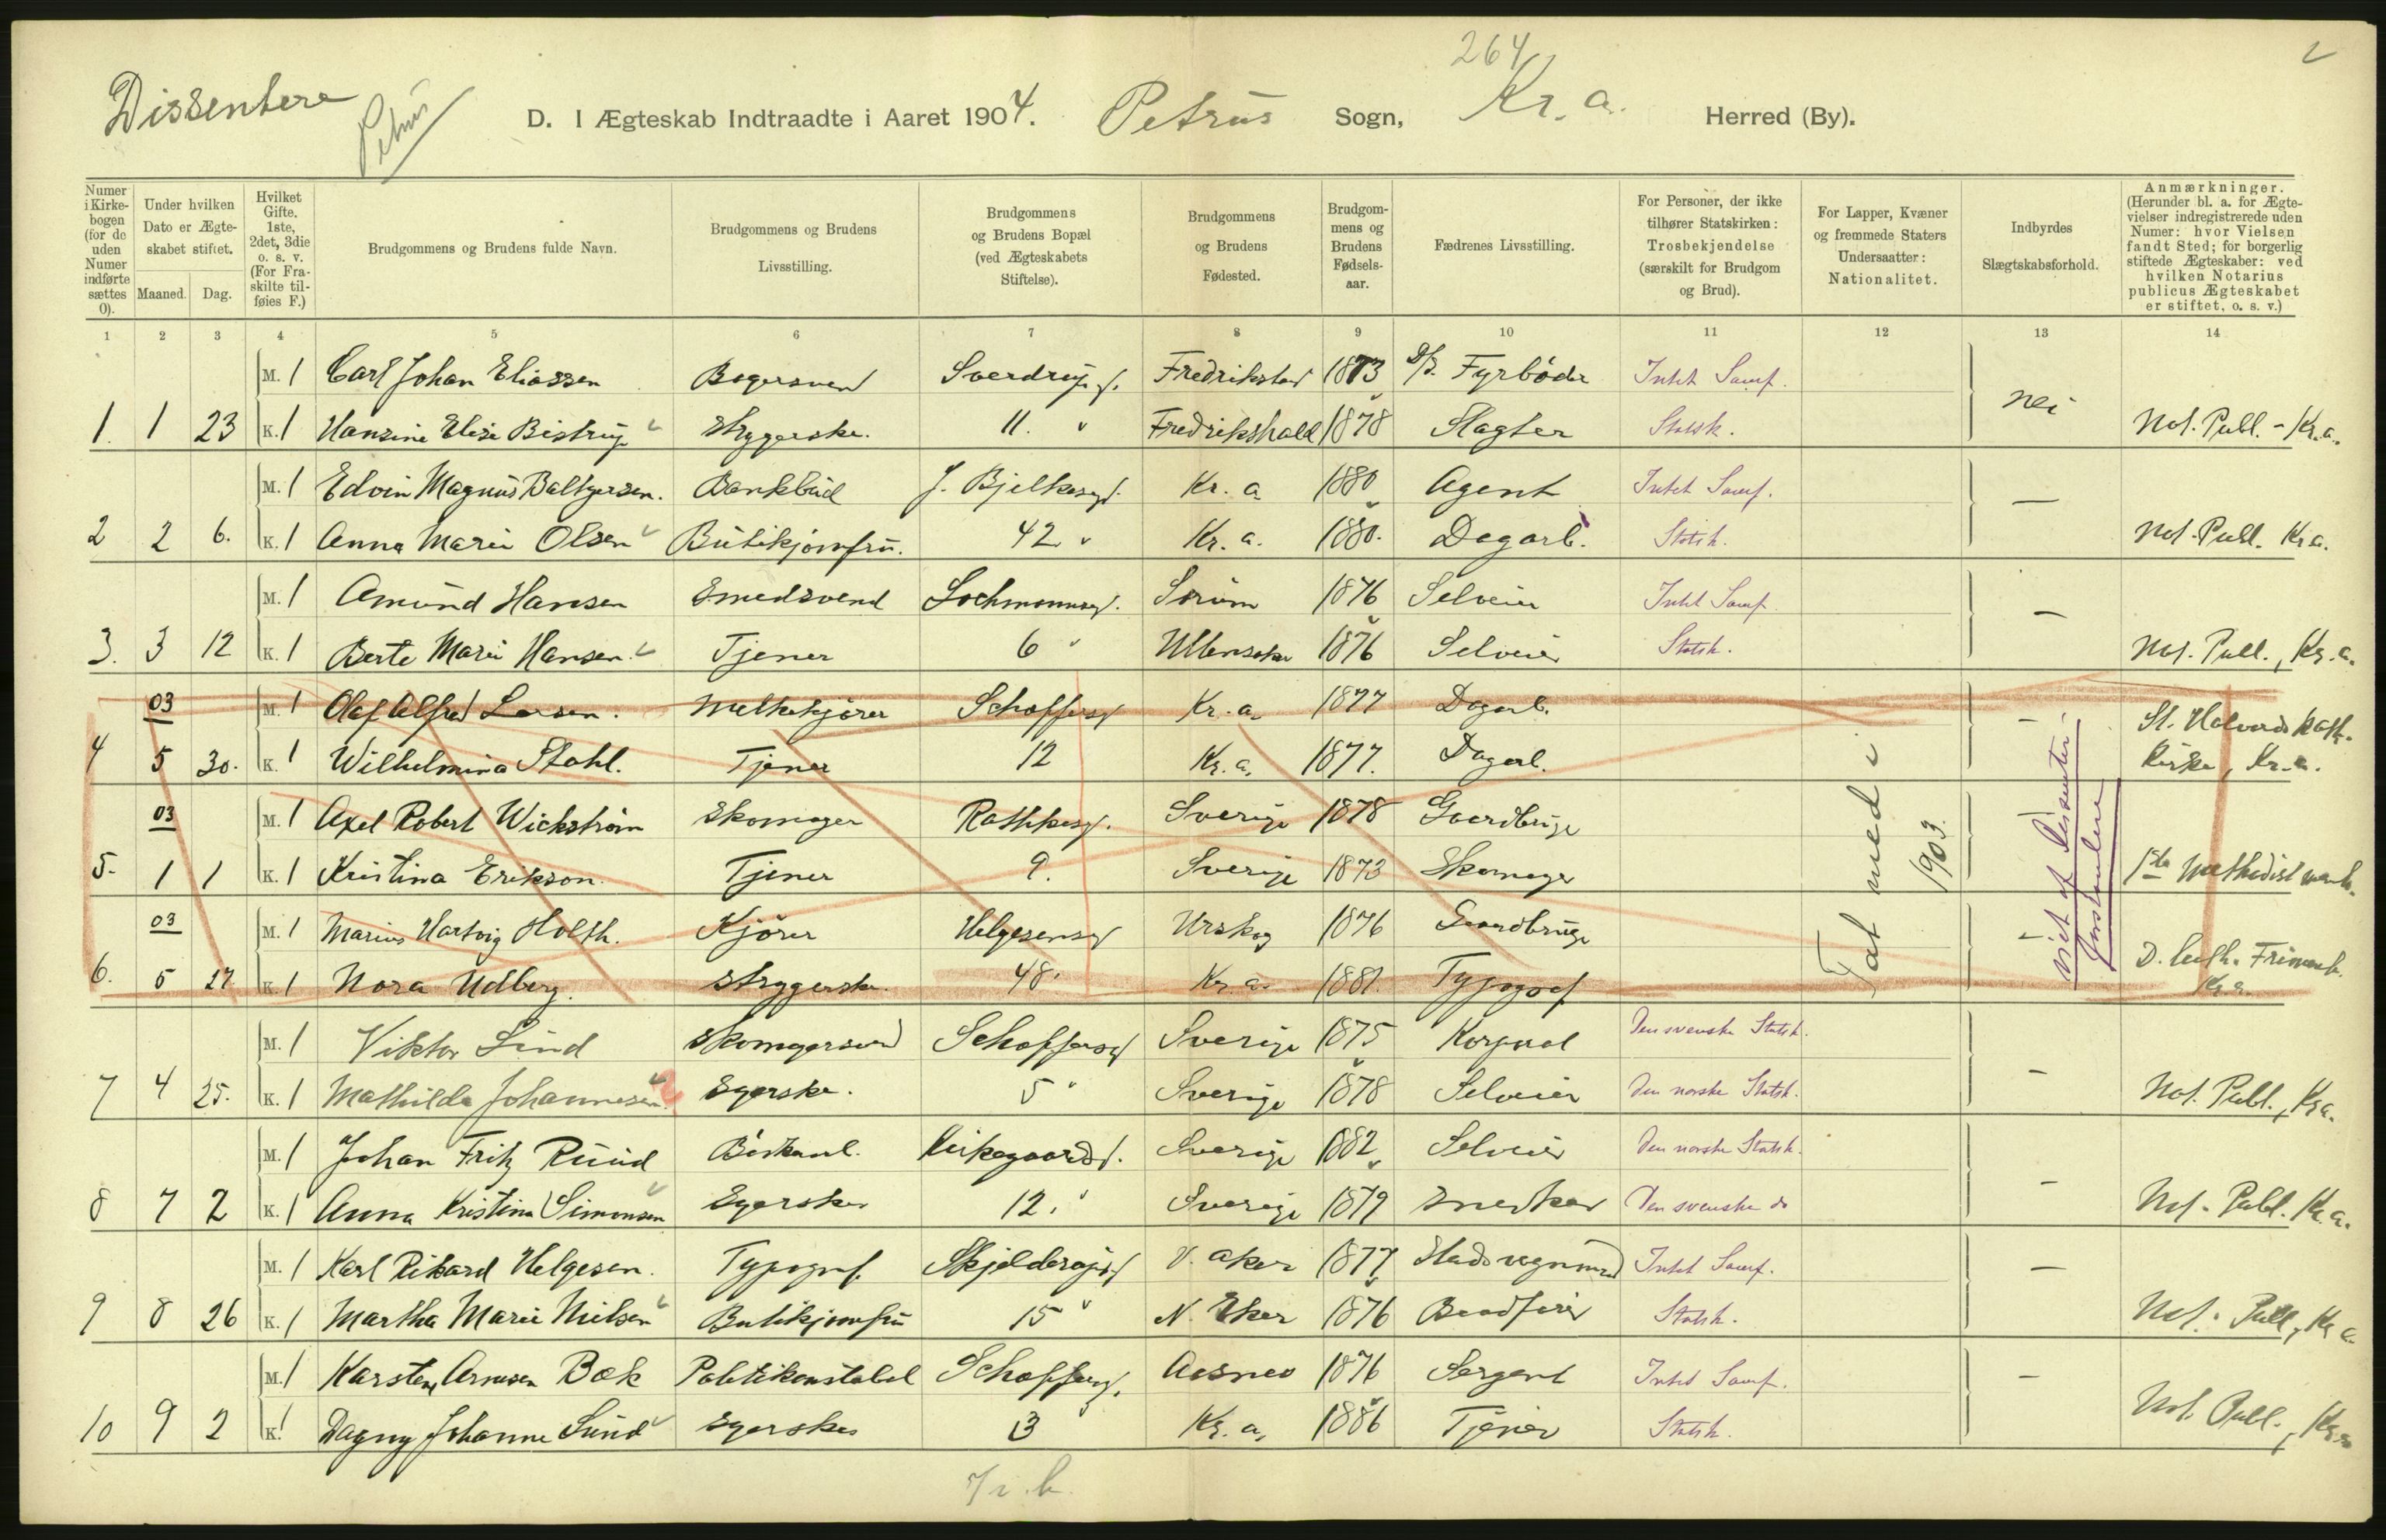 264
Dissentere
Petrus
D. I Ægteskab Indtraadte i Aaret 1904. Petrus Sogn, Kr. a. Herred (By).
Numer i Kirkebogen (for de uden Numer indførte sættes 0).
Under hvilken Dato er Ægteskabet stiftet.
Maaned. Dag.
Hvilket Gifte. 1ste, 2det, 3die o. s. v. (For Fraskilte tilføies F.)
Brudgommens og Brudens fulde Navn.
Brudgommens og Brudens Livsstilling.
Brudgommens og Brudens Bopæl (ved Ægteskabets Stiftelse).
Brudgommens og Brudens Fødested.
Brudgommens og Brudens Fødselsaar.
Fædrenes Livsstilling.
For Personer, der ikke tilhører Statskirken: Trosbekjendelse (særskilt for Brudgom og Brud).
For Lapper, Kvæner og fremmede Staters Undersaatter: Nationalitet.
Indbyrdes Slægtskabsforhold.
Anmærkninger. (Herunder bl. a. for Ægtevielser indregistrerede uden Numer: hvor Vielsen fandt Sted; for borgerlig stiftede Ægteskaber: ved hvilken Notarius publicus Ægteskabet er stiftet, o. s. v.)
1 2 3 4 5 6 7 8 9 10 11 12 13 14
M. 1 Carl Johan Eliassen Bagersvend Sverdrupsg. Fredrikstad 1873 Fyrbøder Intet Samf.
1. 1 23 K. 1 Hansine Elise Bistrup Strygerske. 11. Fredrikshald 1878 Slagter Statsk. nei Not. Publ. - Kr.a.
M. 1 Edvin Magnus Baltzersen. Bankbud J. Bjelkesg. Kr. a 1880 Agent Intet Samf.
2 2 6. K. 1 Anna Marie Olsen Butikjomfru. 42 Kr. a. 1880. Dagarb. Statsk. — Not. Publ. Kr a.
M. 1 Amund Hansen Smedsvend Lochmannsg. Sørum 1876 Selveier Intet Samf.
3. 3 12 K. 1 Berte Marie Hansen. Tjener 6 Ullensaker 1876 Selveier Statsk. — Not. Publ., Kr. a.
03 M. 1 Olaf Alfred Larsen. Melkekjører Schoffersg Kr. a. 1877 Dagarb. - St. Halvards kath.
4 5 30. K. 1 Wilhelmina Stahl. Tjener 12 Kr. a. 1877. Dagarb. Kirke, Kr. a.
03 M. 1 Axel Robert Wickstrøm Skomager Rathkesg. Sverige 1878 Gaardbruger
5. 1 1 K. 1 Kristina Erikson. Tjener 9. Sverige 1873 Skomager 1ste Methodist menh.
03 M. 1 Marius Hartvig Holth. Kjører Helgesensg Urskog 1876 Gaardbruger
6. 5 27. K. 1 Nora Udberg. Strygerske. 48. Kr. a. 1881. Typograf D. luth. Frimenh.
Kr. a.
Tat med i 1903.
viet af Dissenter-
forstandere
M. 1 Viktor Lind Skomagersvend Schoffersg Sverige 1875 Korporal Den svenske Statsk.
7 4 25. K. 1 Mathilda Johannesen. Syerske. 5 Sverige 1878 Selveier Den norske Statsk. - Not. Publ., Kr a.
M. 1 Johan Fritz Ruud Kirkegaardsg. Sverige 1882 Selveier Den norske Statsk.
8 7 2 K. 1 Anna Kristina Simonsen Syerske 12. Sverige 1879 Snedker Den svenske do - Not. Publ. Kr. a.
M. 1 Karl Rikard Helgesen. Typograf. Skjoldersg V. Aker 1877 Stadsvognmand Intet Samf.
9 8 26 K. 1 Martha Marie Nielsen Butikjomfru 15 N. Eker 1876 Brødfører Statsk. — Not. Publ, Kr a.
M. 1 Karsten Arnesen Bæk Politikonstabel Schoffersg. Aasnes 1876 Sergent Intet Samf.
10 9 2 K. 1 Dagny Johanne Lund Syerske 3 Kr. a. 1886 Tjener Statsk. - Not. Publ., Kr. a
7/2. b.